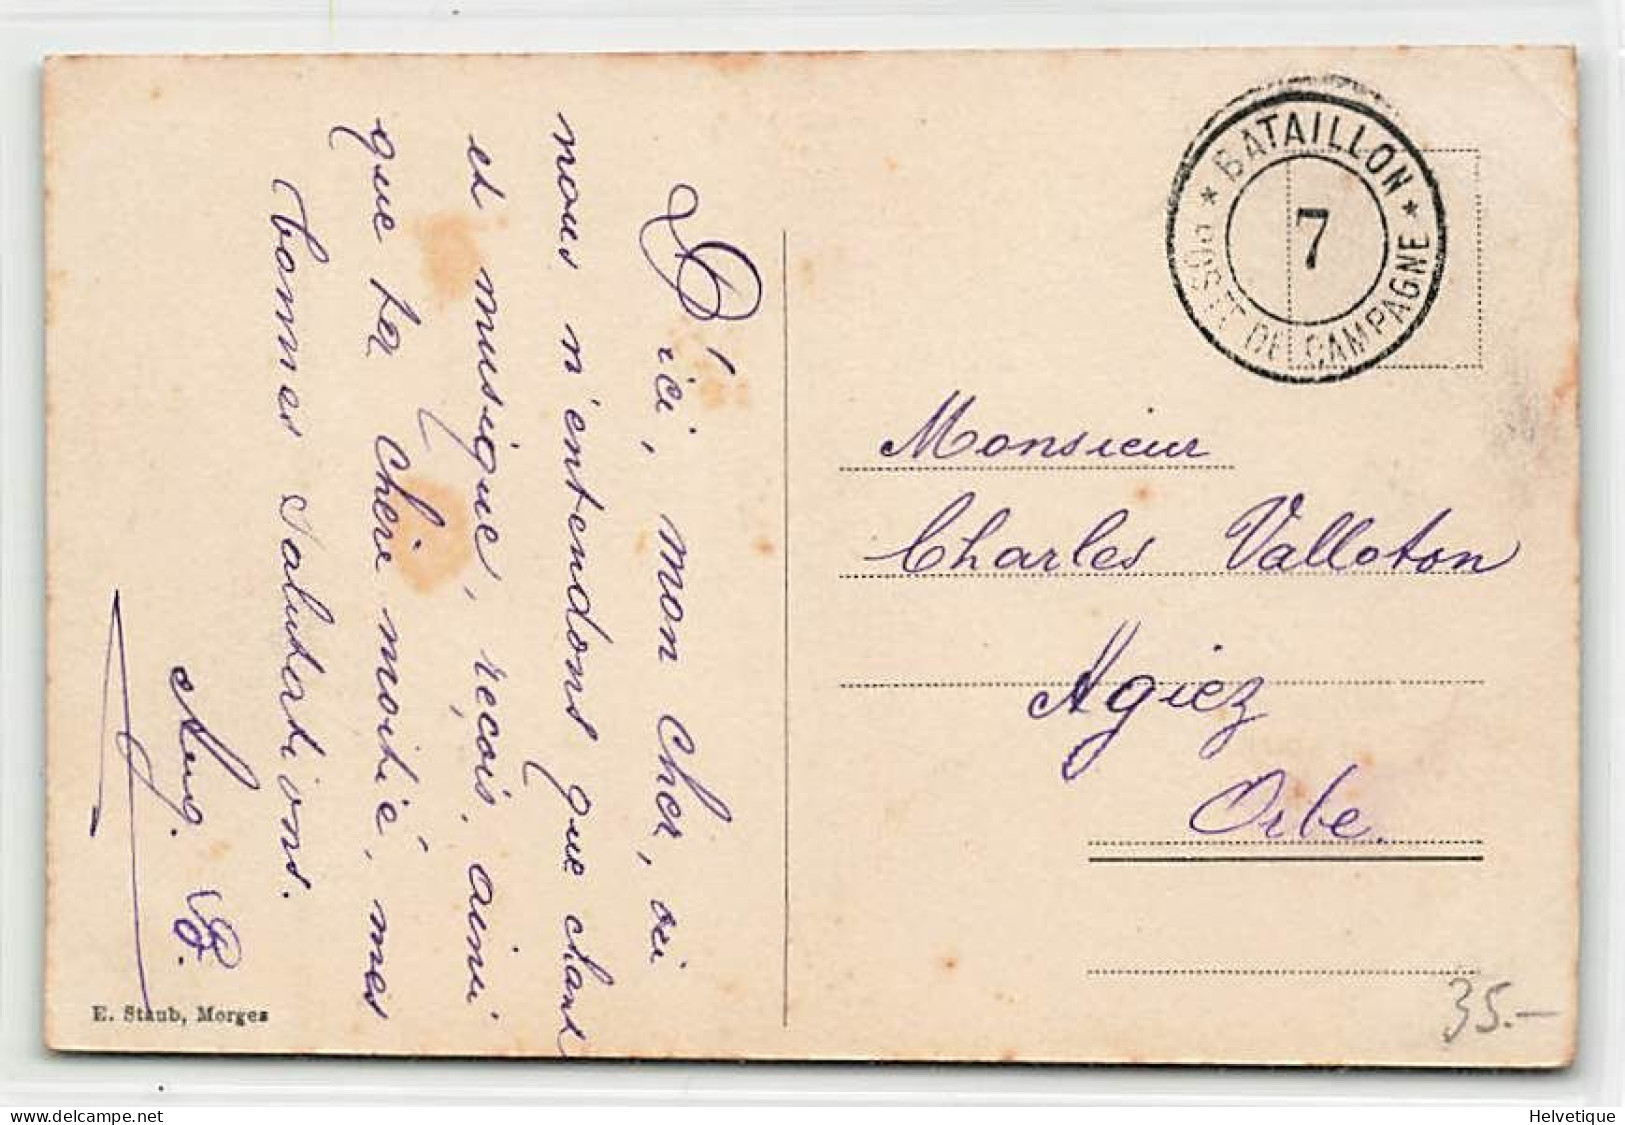 D'ici, mon cher, où
nous n'entendons que chant
et musique, reçois, ainsi
que ta chère moitié, mes
bonnes salutations.
Aug. B.
E. Staub, Morges
* BATAILLON *
POSTE DE CAMPAGNE
7
Monsieur
Charles Valloton
Agiez
Orbe.
35.-
Helvetique
delcampe.net